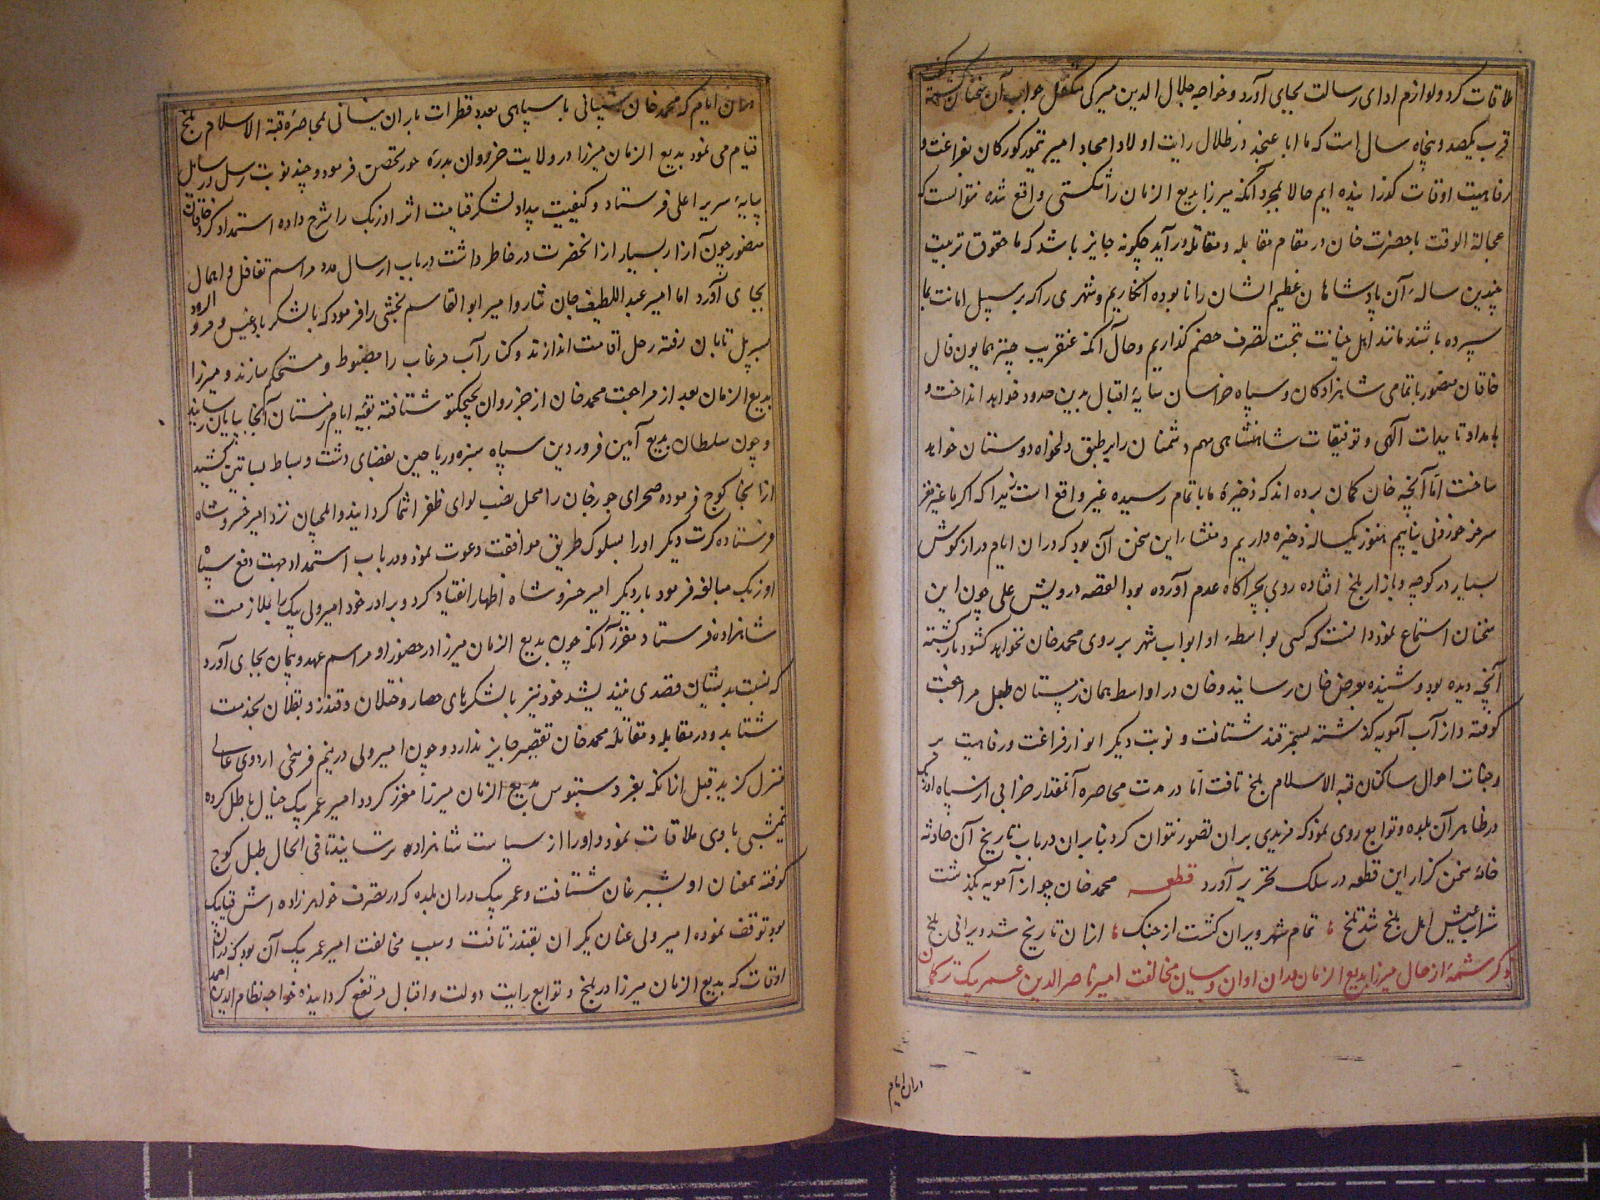 ملاقات کرد و لوازم ادای رسالت بجای آورد و خواجه جلال الدین میرکی متکفل جواب آن سخنان گشته گفت
قرب یکصد و پنجاه سال است که ما ابا عنجد در ظلال رایت اولاد امجاد امیر تیمور کورکان بفراغت و
رفاهیت اوقات گذرانیده ایم حالا بمجرد آنکه میرزا بدیع الزمان را شکستی واقع شده نتوانست که
عجالة الوقت با حضرت خان در مقام مقابله و مقاتله درآید چگونه جایز باشد که ما حقوق تربیت
چندین ساله آن پادشاهان عظیم الشان را نابوده انکاریم و شهری را که بر سبیل امانت بما
سپرده باشند مانند اهل خیانت بتحت تصرف خصم گذاریم و حال آنکه عنقریب چتر همایون فال
خاقان منصور با تمامی شاهزادکان و سپاه خراسان سایه اقبال بدین حدود خواهد انداخت و
بامداد تایدات الهی و توفیقات شاهنشاهی مهم دشمنان را بر طبق دلخواه دوستان خواهد
ساخت اما آنچه خان کمان برده اند که ذخیره ما باتمام رسیده غیر واقع است زیرا که اکر ما غیر مغز
سر خر خوردنی نیابیم هنوز یکساله ذخیره داریم و منشاء این سخن آن بود که دران ایام دراز کوش
بسیار در کوچه و بازار بلخ افتاده روی بچراکاه عدم آورده بود القصه درویش علی چون این
سخنان استماع نمود دانست که کسی بواسطه او ابواب شهر بر روی محمد خان نخواهد کشود باز کشته
آنچه دیده بود و شنیده بعرض خان رسانید و خان در اواسط همان زمستان طبل مراجعت
کوفته و از آب آمویه گذشته بسمرقند شتافت و نوبت دیگر انوار فراغت و رفاهیت بر
وجنات احوال ساکنان قبه الاسلام بلخ تافت اما در مدت محاصره آنمقدار خرابی از سپاه اوزبک
در ظاهر آن بلده و توابع روی نمود که مزیدی بران تصور نتوان کرد بنابران در باب تاریخ آن حادثه
خامه سخن گزار این قطعه در سلک تحریر آورد قطعه محمد خان چو از آمویه بگذشت
شراب عیش اهل بلخ شد تلخ تمام شهر ویران کشت از جنک ازان تاریخ شد ویرانی بلخ
ذکر شمه از حال میرزا بدیع الزمان دران اوان و بیان مخالفت امیر ناصر الدین عمر بیک ترکمان
دران ایام
دران ایام که محمد خان شیبانی با سپاهی بعدد قطرات باران نیسانی بمحاصره قبة الاسلام بلخ
قیام می نمود بدیع الزمان میرزا در ولایت جرزوان بدره تحصن فرمود و چند نوبت رسل و رسایل
بپایه سریر اعلی فرستاد و کیفیت بیداد لشکر قیامت اثر اوزبک را شرح داده استمداد کرد خاقان
منصور چون آزار بسیار از آنحضرت در خاطر داشت در باب ارسال مدد مراسم تغافل و اهمال
بجای آورد اما امیر عبد اللطیف جان نثار و امیر ابو القاسم بخشی را فرمود که با لشکر بادغیس و مرو الرود
بسر پل تابان رفته رحل اقامت اندازند و کنار آب مرغاب را مضبوط و مستحکم سازند و میرزا
بدیع الزمان بعد از مراجعت محمد خان از جرزوان بچیچکتو شتافته بقیه ایام زمستان آنجا بپایان رسانید
و چون سلطان بدیع آیین فروردین سپاه سبزه و ریاحین بفضای دشت و بساط بساتین کشید
از آنجا کوچ فرموده صحرای جورجان را محل نصب لوای ظفر انتما کردانید و ایلچیان نزد امیر خسرو شاه
فرستاده کرت دیگر او را بسلوک طریق موافقت دعوت نمود و در باب استمداد جهت دفع سپاه
اوزبک مبالغه فرمود بار دیگر امیر خسرو شاه اظهار انقیاد کرد و برادر خود امیر ولی بیک را بملازمت
شاهزاده فرستاد مقرر آنکه چون بدیع الزمان میرزا در حضور او مراسم عهد و پیمان بجای آورد
که نسبت بدیشان قصدی نیندیشد خود نیز با لشکرهای حصار و ختلان و قندز و بقلان بخدمت
شتابد و در مقابله و مقاتله محمد خان تقصیر جایز ندارد و چون امیر ولی در نیم فرسخی اردوی عالی
منزل گزید قبل از آنکه بعز دستبوس بدیع الزمان میرزا معزز کردد امیر عمر بیک خیال باطل کرده
نیمشبی با وی ملاقات نمود و او را از سیاست شاهزاده ترسانید تا فی الحال طبل کوچ
کوفته بمعنان او بشبرغان شتافت و عمر بیک دران بلده که در تصرف خواهرزاده اش قنبربیک
بود توقف نموده امیر ولی عنان یکران بقندز تافت و سبب مخالفت امیر عمر بیک آن بود که دران
اوقات که بدیع الزمان میرزا در بلخ و توابع رایت دولت و اقبال مرتفع کردانیده خواجه نظام الدین احمد